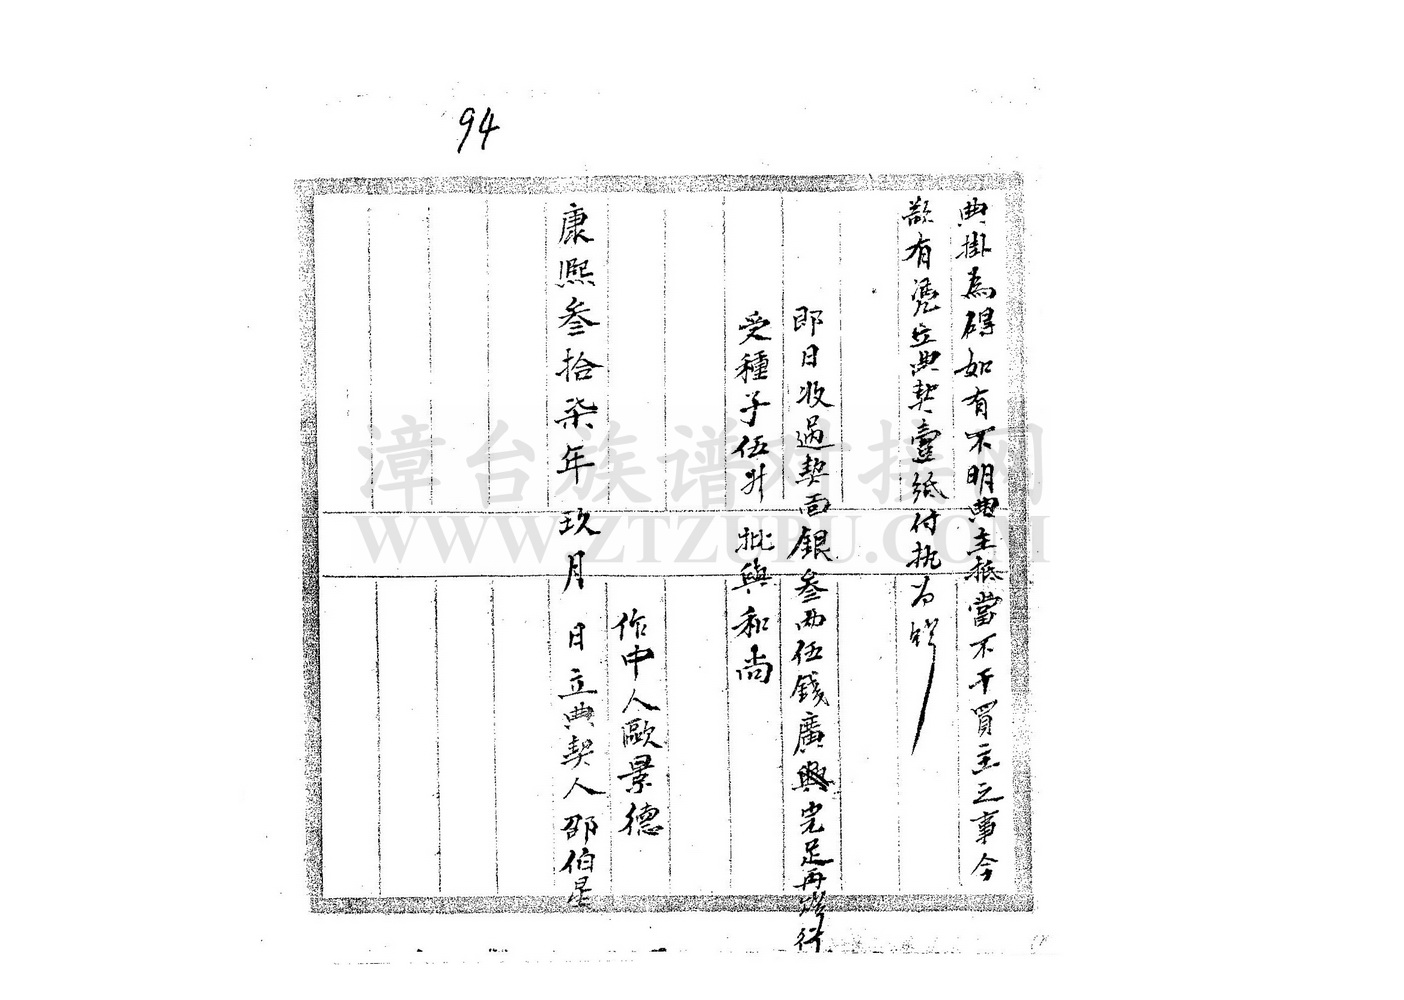 94
典掛為碍如有不明典主抵當不干買主之事今
欲有憑立典契壹紙付執為炤
即日收過契面銀叁両伍錢廣興完足再炤行
受種子伍升批與和尚
作中人歐景德
康熈叁拾柒年玖月 日立典契人邵伯星
漳台族谱对接网
WWW.ZTZUPU.COM